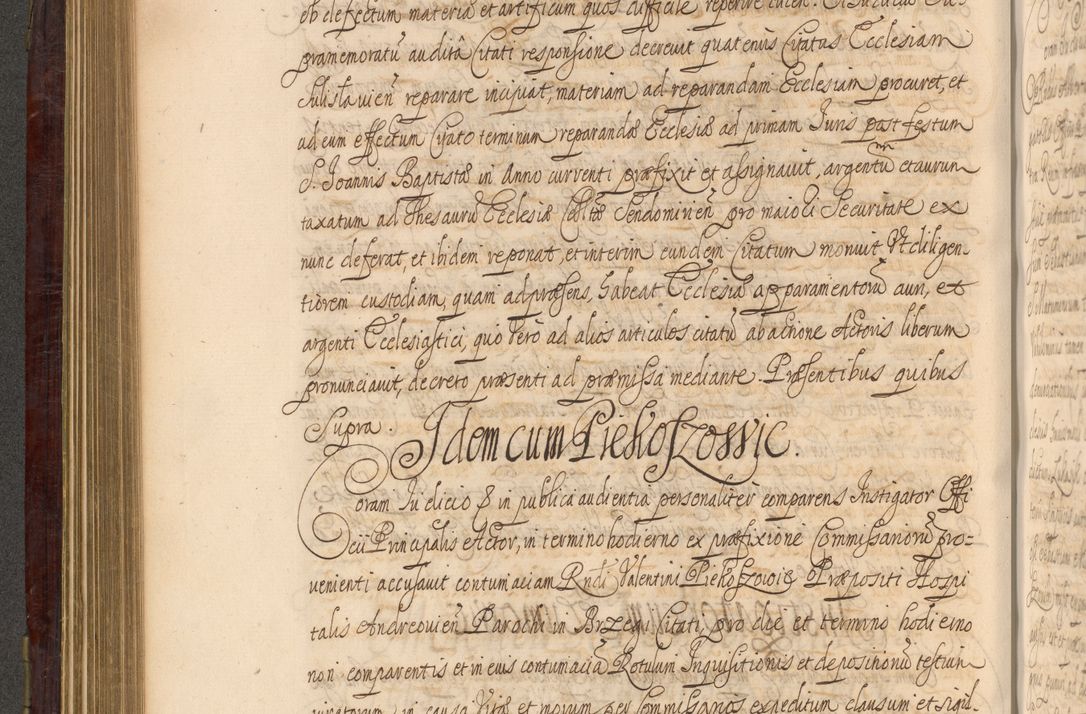 ob defectum materiæ et artificum quos difficile reperire
præmemoratū auditâ Citati responsione decrevit quatenus Citatus Ecclesiam
Sulislavien̄ reparare incipiat, materiam ad reparandam Ecclesiam procuret, et
ad eum effectum Citato terminum reparandæ Ecclesiæ ad primam Juris post festum
S. Joannis Baptistæ in Anno currenti præfixit et assignavit, argentum et aurum
taxatum ad Thesaurū Ecclesiæ Collttæ Sendomirien̄ pro maiori Securitate ex
nunc deferat, et ibidem reponat, et interim eundem Citatum monuit Vt diligen-
tiorem custodiam, quam ad præsens, habeat Ecclesiæ apparamentorū auri, et
argenti Ecclesiastici, quo Verò ad alios articulos citatū ab actione Actoris liberum
pronunciavit, decreto præsenti ad præmissa mediante. Præsentibus quibus
Supra.
Idem cum Piekoszowic.
Coram Judicio & in publica audientia personaliter comparens Instigator Offi
cii Principalis Actor, in termino hodierno ex præfixione Commissariorū pro=
venienti accusavit contumaciam Rndi Valentini Piekoszowic Præpositi Hospi
talis Andreovien̄ Parochi in Brzegi Citati, pro die et termino hodierno
non comparentis et in eius contumaciā Rotulum Inquisitionis et depositionū testium
juratorum in causa Vitæ et morum per Commissarios expeditum clausum et sigil-